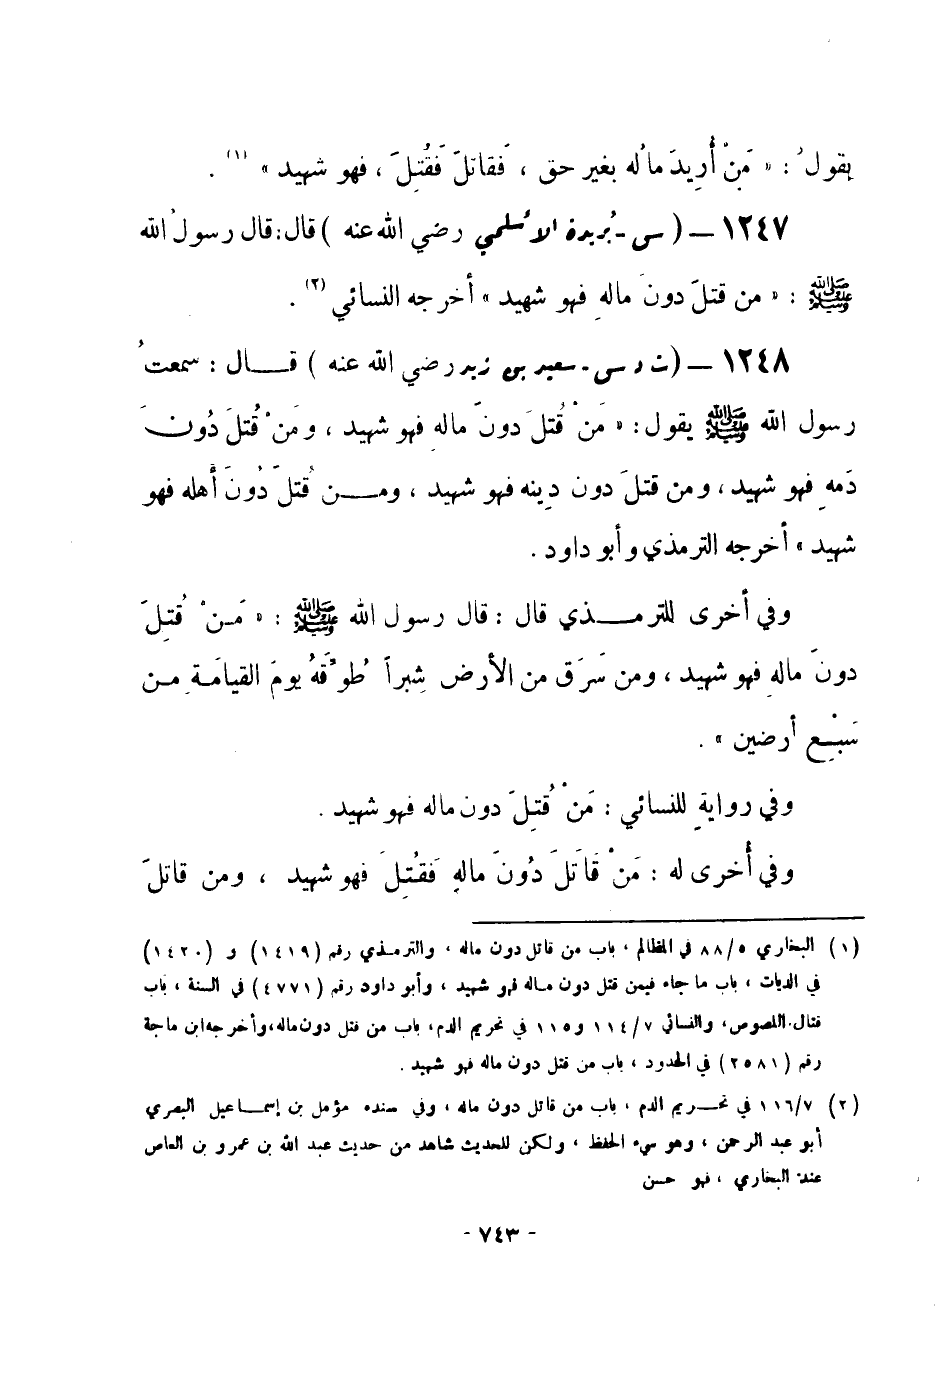 يقولُ : « مَنْ أُرِيدَ مالُه بغير حق ، فَقاتلَ فَقُتِلَ ، فهو شهيد » (١) .
١٢٤٧ — ( س - بُريدة الأسلمي رضي الله عنه ) قال : قال رسولُ الله
ﷺ : « من قتلَ دونَ مالهِ فهو شهيد » أخرجه النسائي (٢) .
١٢٤٨ — ( ت د س - سعيد بن زيد رضي الله عنه ) قــال : سمعتُ
رسول الله ﷺ يقول : « مَنْ قُتلَ دونَ مالهِ فهو شهيد ، ومَنْ قُتلَ دُونَ
دَمهِ فهو شهيد ، ومن قتلَ دون دِينه فهو شهيد ، ومــن قُتلَ دُونَ أَهله فهو
شهيد » أخرجه الترمذي وأبو داود .
وفي أخرى للترمــذي قال : قال رسول الله ﷺ : « مَـنْ قُتِلَ
دونَ مالهِ فهو شهيد ، ومن سَرَق من الأرض شِبراً طُوِّقَهُ يومَ القيامَـةِ مـن
سَبْـعِ أرضين » .
وفي روايةٍ للنسائي : مَنْ قُتِلَ دون ماله فهو شهيد .
وفي أُخرى له : مَنْ قَاتلَ دُونَ مالهِ فَقُتلَ فهو شهيد ، ومن قاتلَ
(١) البخاري ٨٨/٥ في المظالم ، باب من قاتل دون ماله ، والترمـذي رقم (١٤١٩) و (١٤٢٠)
في الديات ، باب ما جاء فيمن قتل دون مـاله فهو شهيد ، وأبو داود رقم (٤٧٧١) في السنة ، باب
قتال اللصوص، والنسائي ١١٤/٧ و١١٥ في تحريم الدم، باب من قتل دون ماله،وأخرجه ابن ماجة
رقم (٢٥٨١) في الحدود ، باب من قتل دون ماله فهو شهيد .
(٢) ١١٦/٧ في تحــريم الدم ، باب من قاتل دون ماله ، وفي سنده مؤمل بن إسمــاعيل البصري
أبو عبد الرحمن ، وهو سيء الحفظ ، ولكن للحديث شاهد من حديث عبد الله بن عمرو بن العاص
عند البخاري ، فهو حسن
- ٧٤٣ -